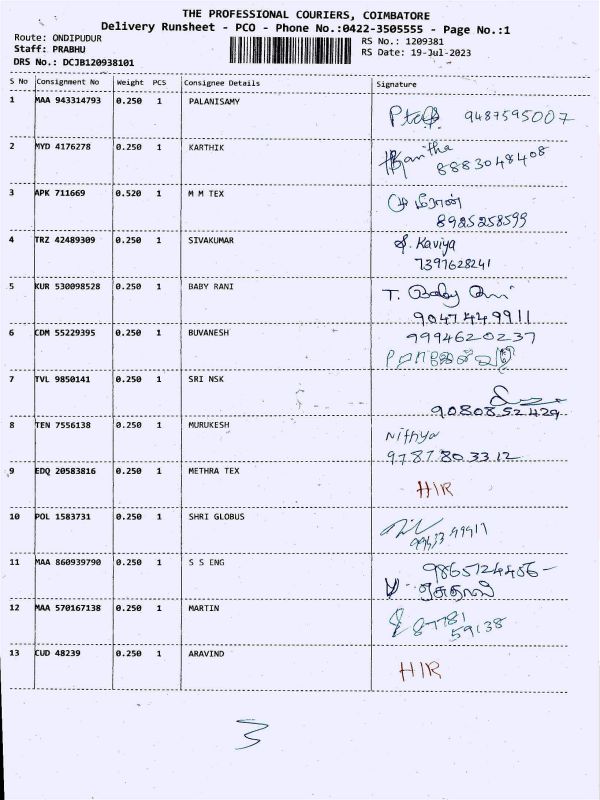 THE PROFESSIONAL COURIERS, COIMBATORE
Delivery Runsheet - PCO - Phone No.:0422-3505555 - Page No.:1
Route: ONDIPUDUR
RS No.: 1209381
Staff: PRABHU
RS Date: 19-Jul-2023
DRS No.: DCJB120938101
S No Consignment No Weight PCS Consignee Details Signature
1 MAA 943314793 0.250 1 PALANISAMY
9487595007
2 MYD 4176278 0.250 1 KARTHIK
8883048408
3 APK 711669 0.520 1 M M TEX
8925258599
4 TRZ 42489309 0.250 1 SIVAKUMAR S. Kaviya
7397628241
5 KUR 530098528 0.250 1 BABY RANI T. Baby Rani
9047449911
6 CDM 55229395 0.250 1 BUVANESH 9994620237
7 TVL 9850141 0.250 1 SRI NSK
9080852429
8 TEN 7556138 0.250 1 MURUKESH Nithya
9787803312
9 EDQ 20583816 0.250 1 METHRA TEX
HIR
10 POL 1583731 0.250 1 SHRI GLOBUS
11 MAA 860939790 0.250 1 S S ENG 9865124486
12 MAA 570167138 0.250 1 MARTIN 87781
59138
13 CUD 48239 0.250 1 ARAVIND
HIR